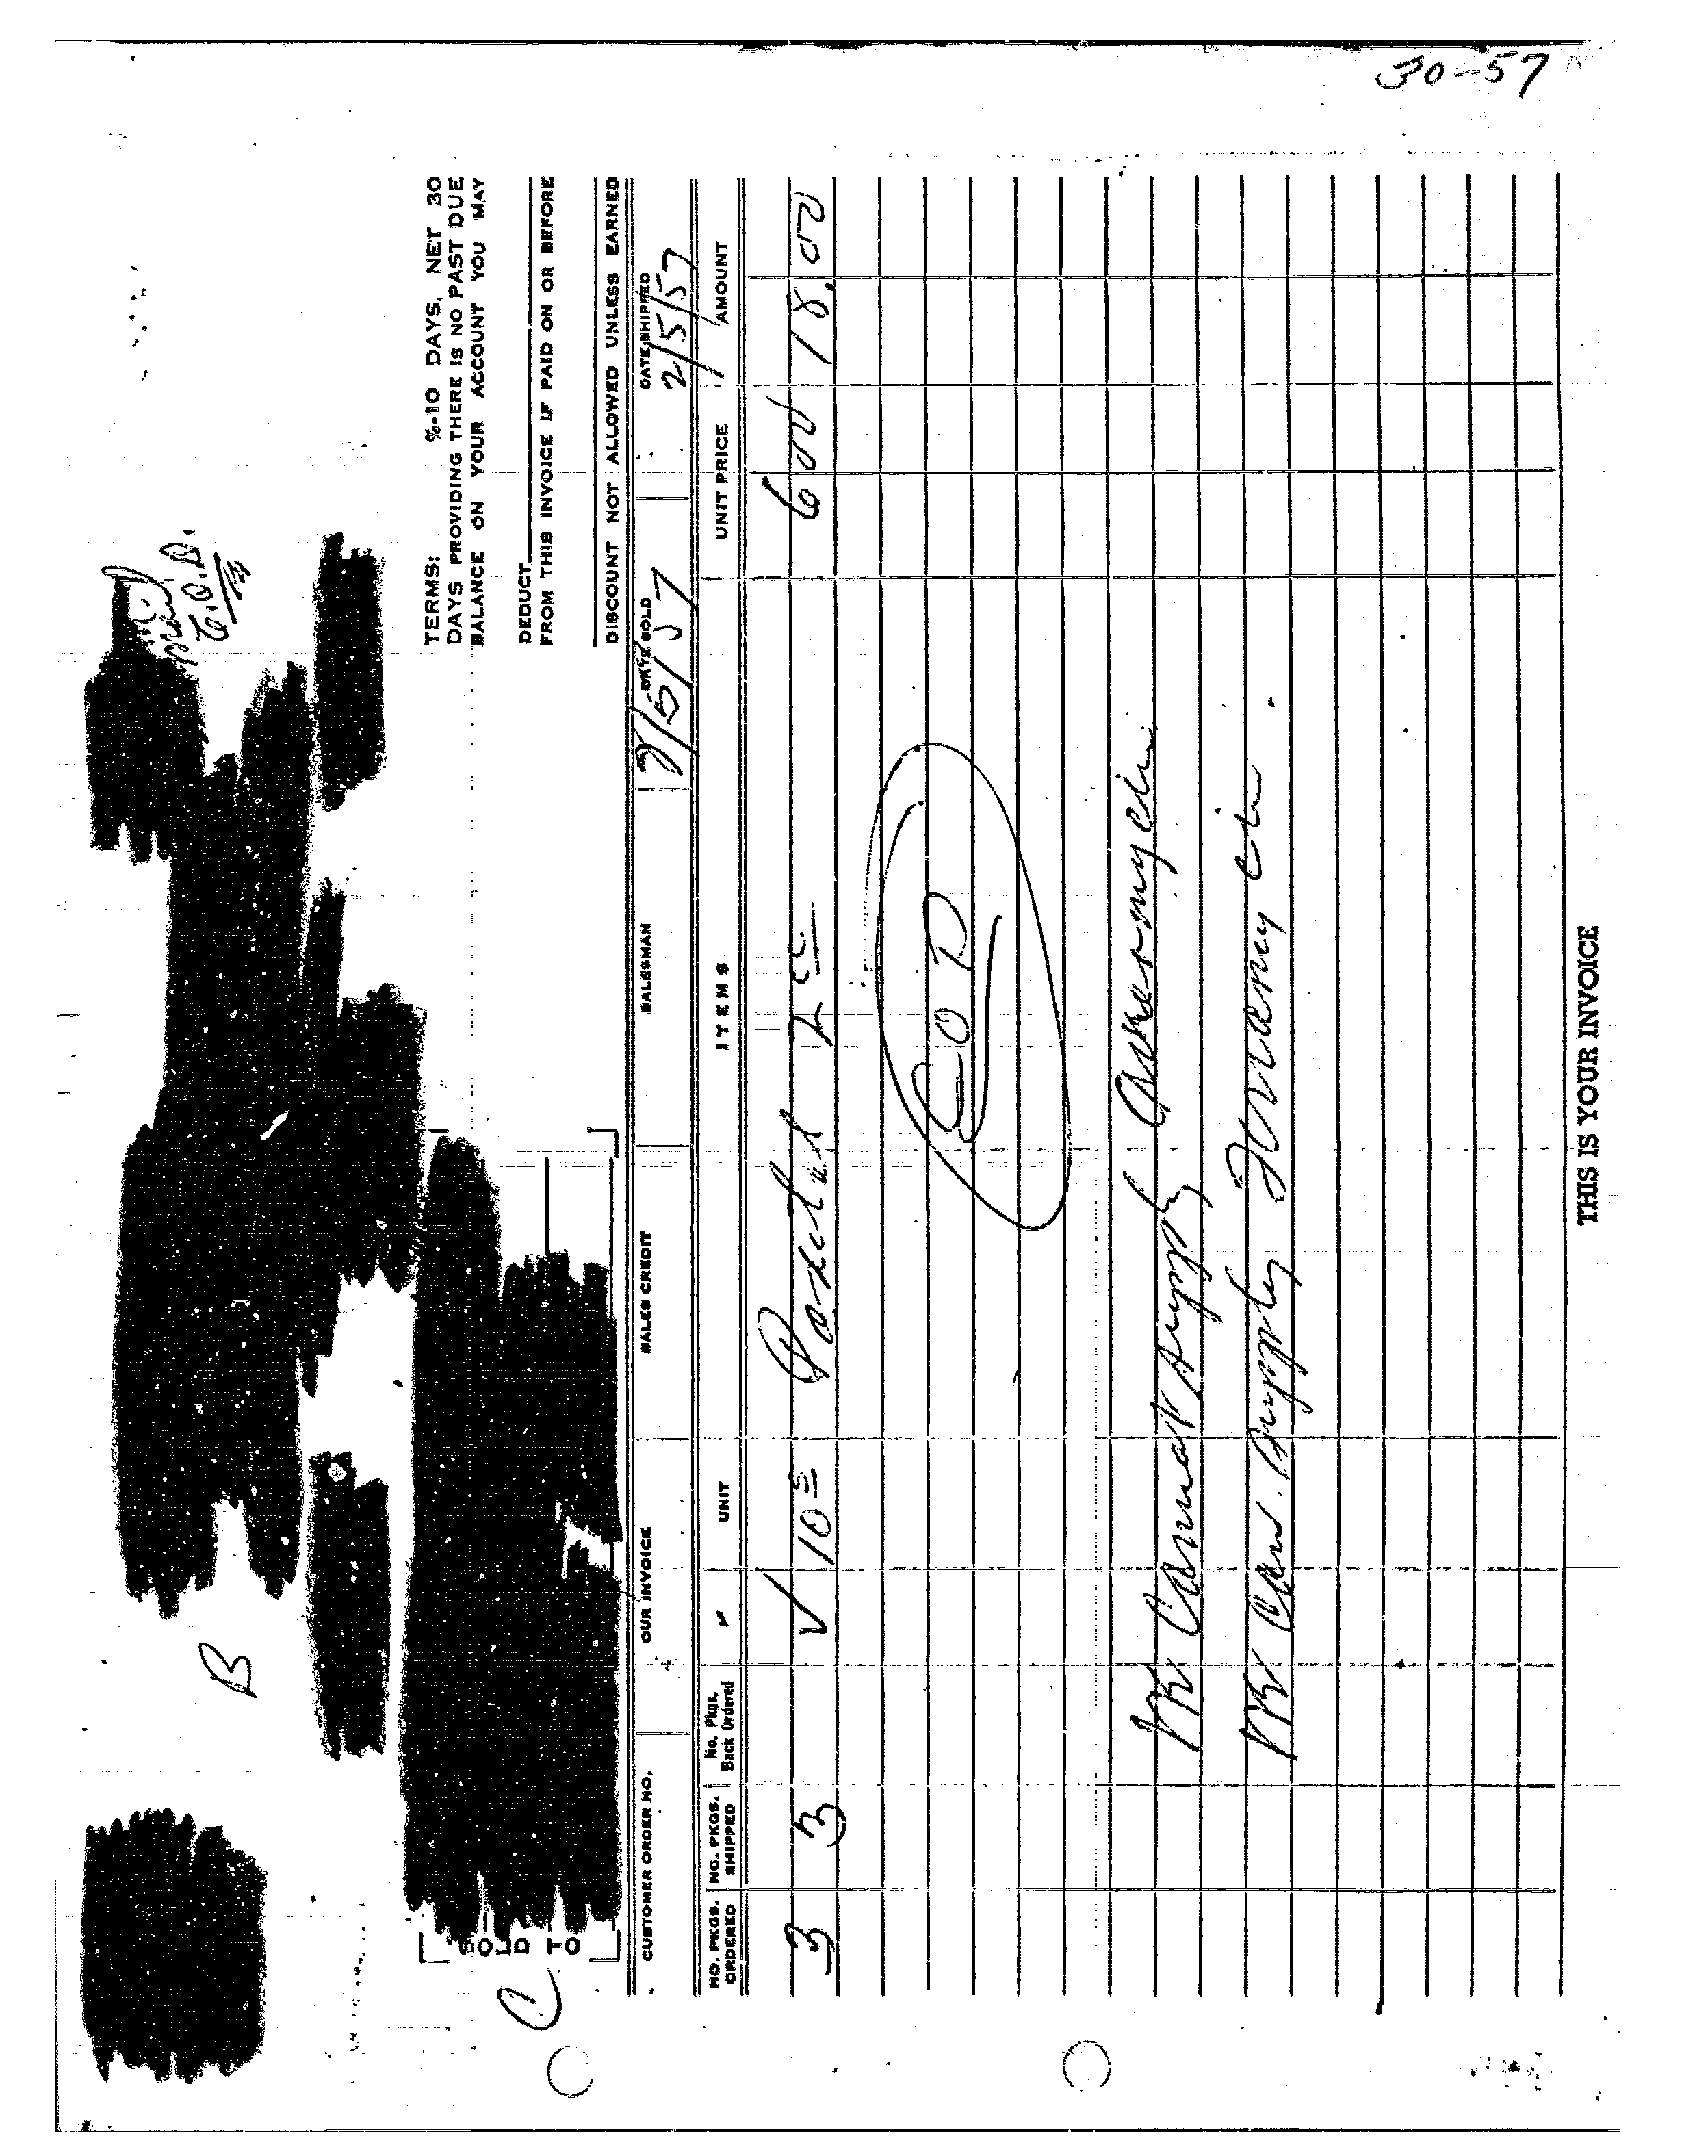 30-57
Mail
C.O.D.
B
TERMS: %-10 DAYS, NET 30
DAYS PROVIDING THERE IS NO PAST DUE
BALANCE ON YOUR ACCOUNT YOU MAY
DEDUCT
FROM THIS INVOICE IF PAID ON OR BEFORE
DISCOUNT NOT ALLOWED UNLESS EARNED
C
SOLD TO
CUSTOMER ORDER NO. OUR INVOICE SALES CREDIT SALESMAN DATE SOLD DATE SHIPPED
2/5/57 2/5/57
NO. PKGS. ORDERED NO. PKGS. SHIPPED No. Pkgs. Back Ordered ✓ UNIT ITEMS UNIT PRICE AMOUNT
3 3 ✓ 10 2 cc 6 00 18.00
COD
We Cannot supply
We can supply
THIS IS YOUR INVOICE